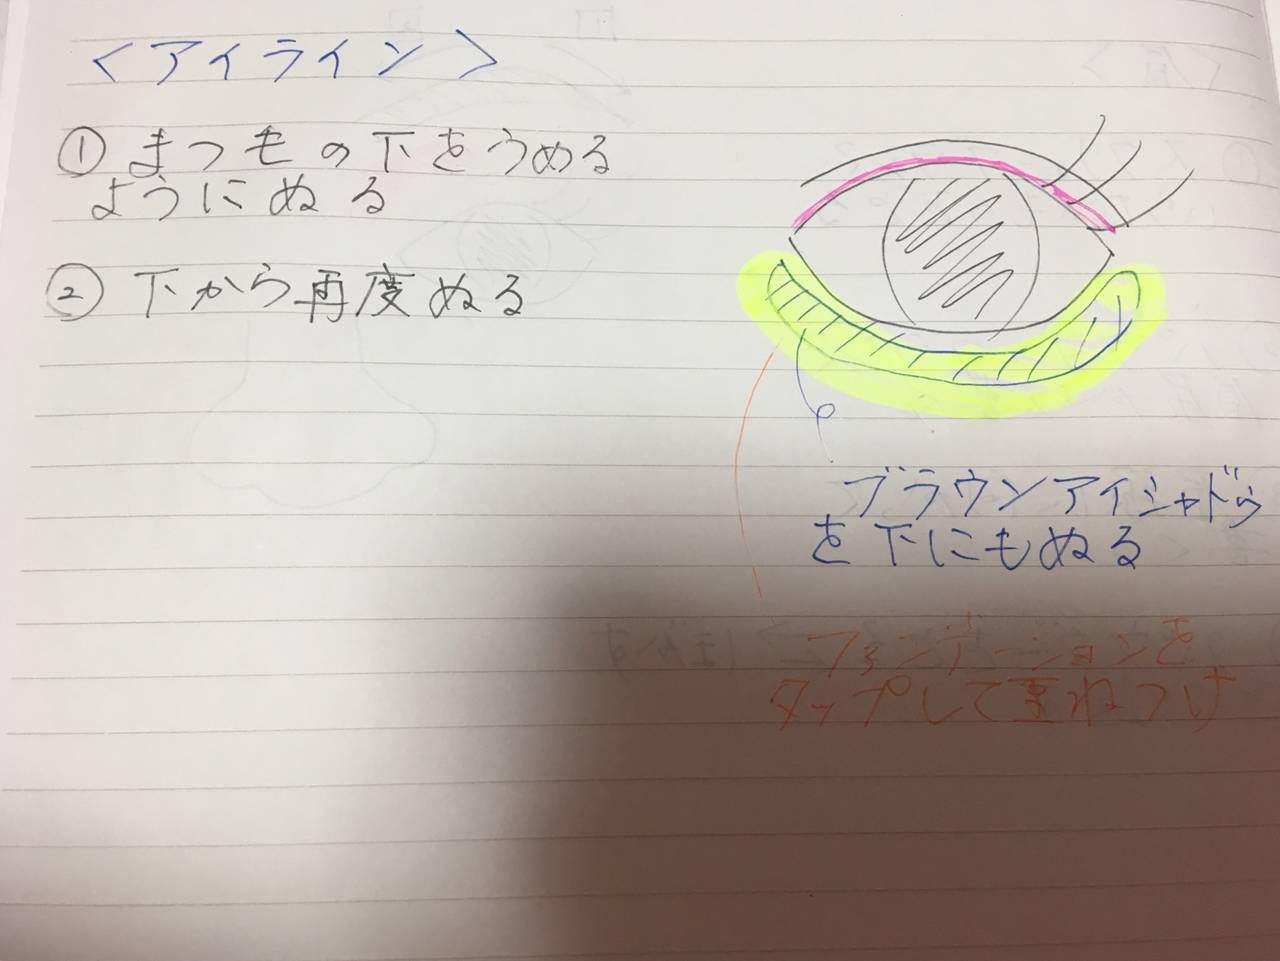 <アイライン>
① まつ毛の下をうめる
ようにぬる
② 下から再度ぬる
ブラウンアイシャドウ
を下にもぬる
ファンデーションを
タップして重ねつけ